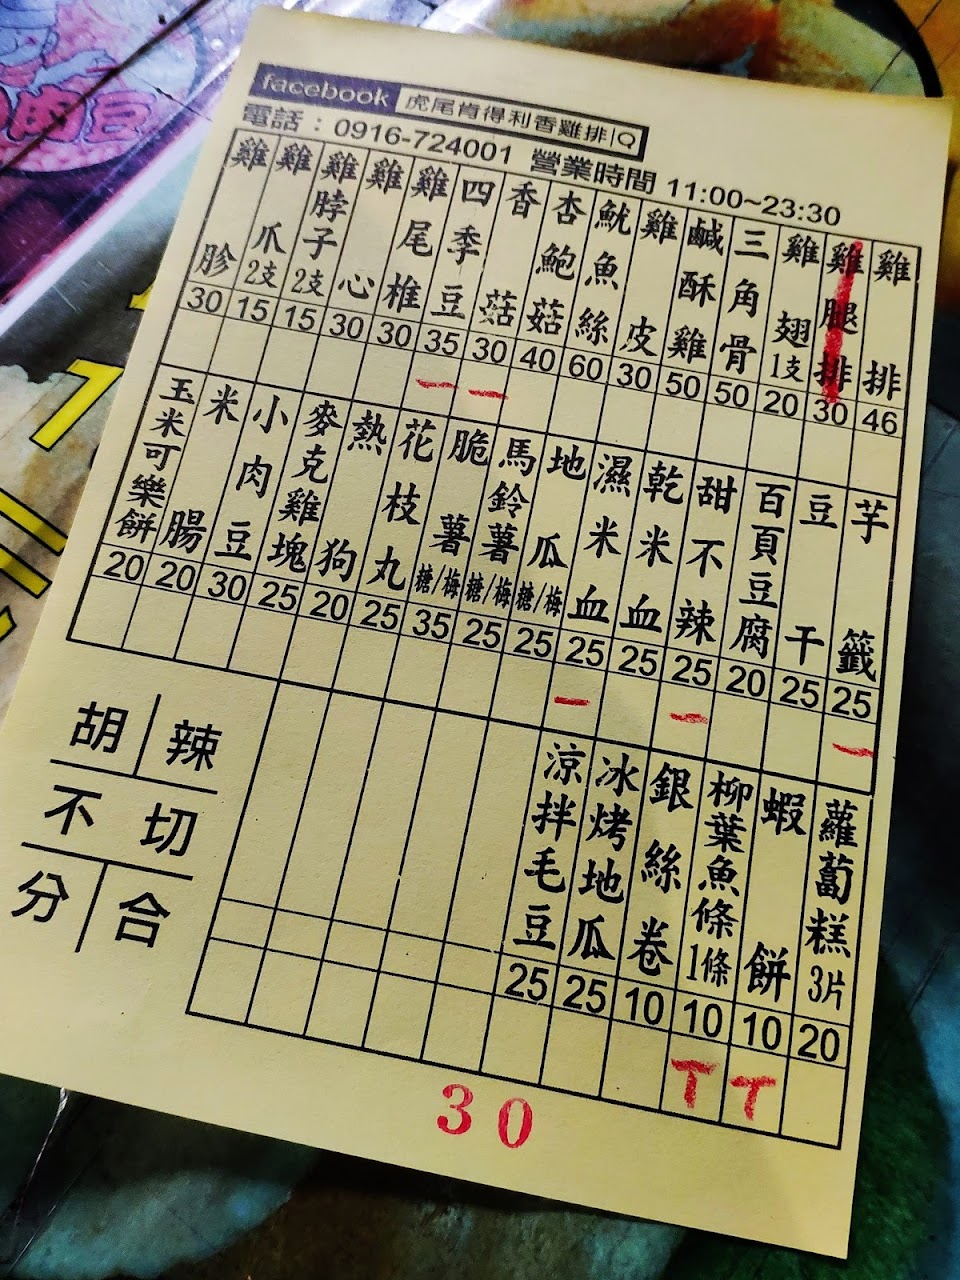 facebook 虎尾肯得利香雞排 Q
電話：0916-724001 營業時間 11:00~23:30
雞排 46
雞腿排 30
雞翅1支 20
三角骨 50
鹹酥雞 50
雞皮 30
魷魚絲 60
杏鮑菇 40
香菇 30
四季豆 35
雞尾椎 30
雞心 30
雞脖子2支 15
雞爪2支 15
雞胗 30
芋籤 25
豆干 25
百頁豆腐 20
甜不辣 25
乾米血 25
濕米血 25
地瓜糖/梅 25
馬鈴薯糖/梅 25
脆薯糖/梅 35
花枝丸 25
熱狗 20
麥克雞塊 25
小肉豆 30
米腸 20
玉米可樂餅 20
蘿蔔糕3片 20
蝦餅 10
柳葉魚條1條 10
銀絲卷 10
冰烤地瓜 25
涼拌毛豆 25
胡 辣
不 切
分 合
30
肉豆